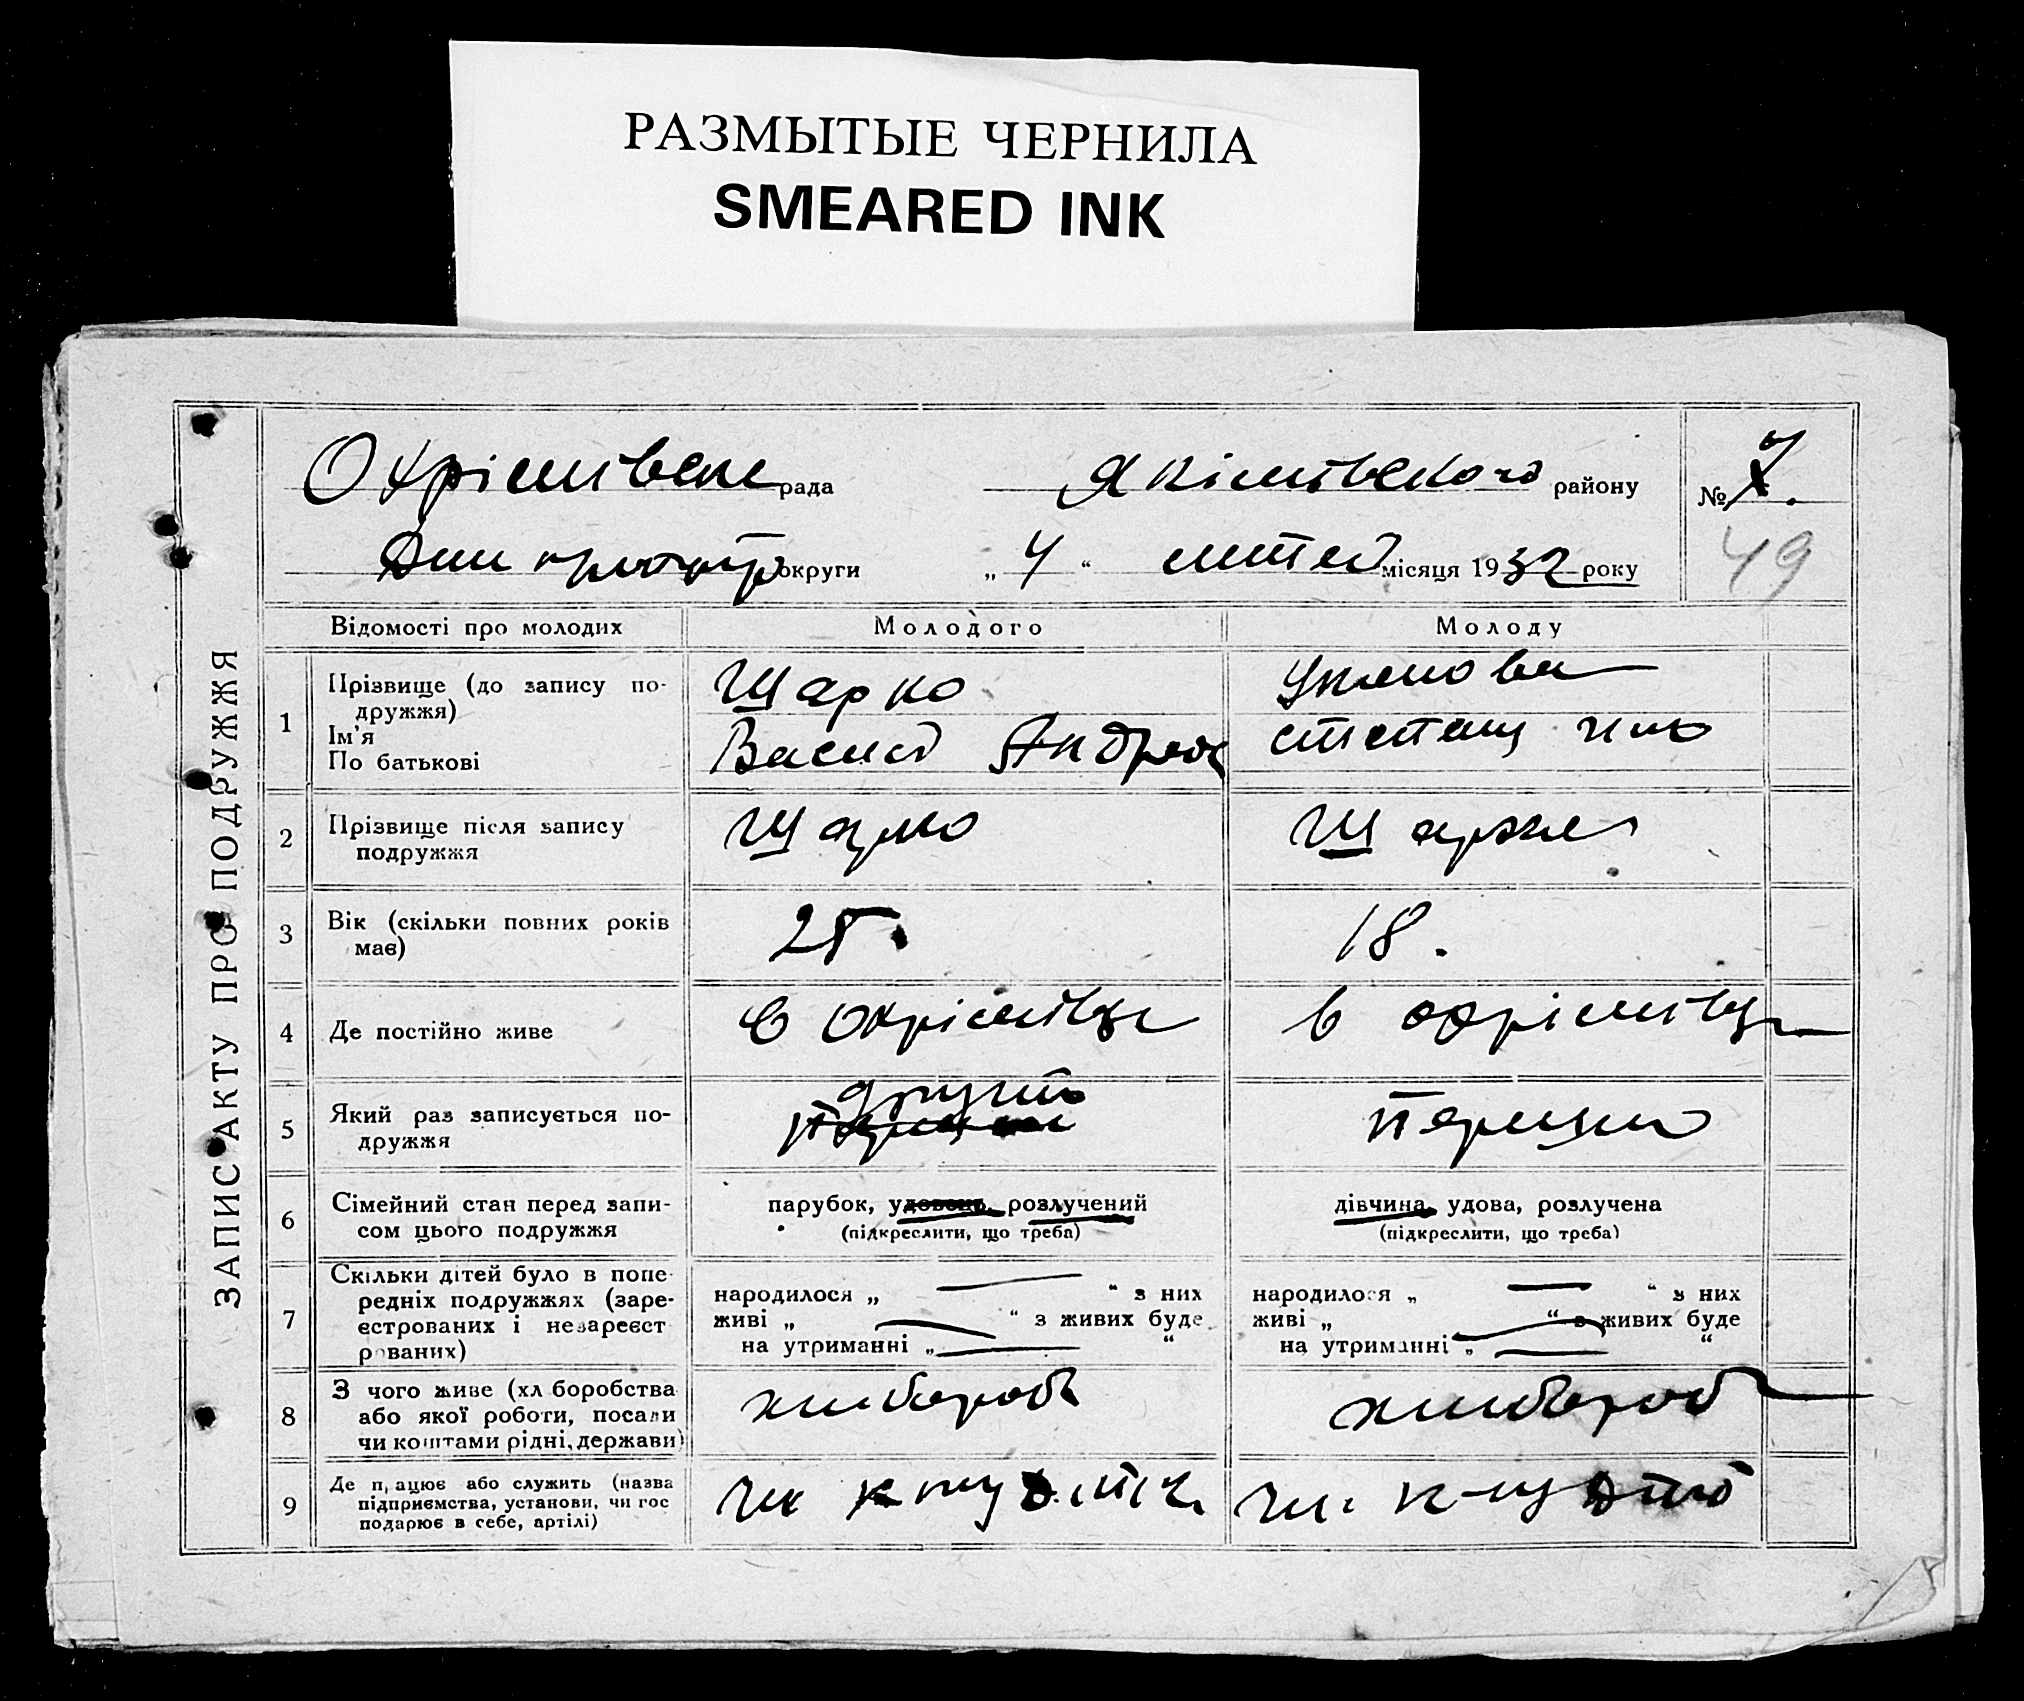 РАЗМЫТЫЕ ЧЕРНИЛА
SMEARED INK
ЗАПИС АКТУ ПРО ПОДРУЖЖЯ
рада Якімівського району № 7.
округи „ 4 “ місяця 1932 року 49
Відомості про молодих Молодого Молоду
1 Прізвище (до запису по-
дружжя) Шарко
Ім'я
По батькові Василь
2 Прізвище після запису
подружжя Шарко Шарко
3 Вік (скільки повних років
має) 25. 18.
4 Де постійно живе в Охрімівці в Охрімівці
5 Який раз записується по-
дружжя другий перший
6 Сімейний стан перед запи-
сом цього подружжя парубок, удовець, розлучений дівчина, удова, розлучена
(підкреслити, що треба) (підкреслити, що треба)
7 Скільки дітей було в попе-
редніх подружжях (заре-
єстрованих і незареєст
рованих)
народилося „ — “ з них народилося „ — “ з них
живі „ — “ з живих буде живі „ — “ з живих буде
на утриманні „ — “ на утриманні „ — “
8 З чого живе (хліборобства
або якої роботи, посади
чи коштами рідні, держави) хлібороб хлібороб
9 Де працює або служить (назва
підприємства, установи, чи гос
подарює в себе, артілі)